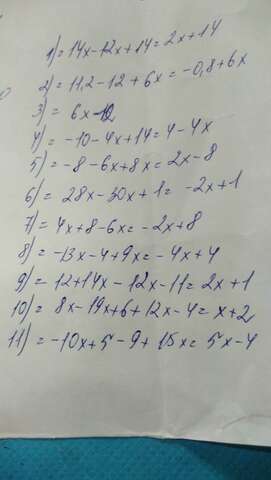 1) = 14x-12x+14=2x+14
2) = 11,2-12+6x=-0,8+6x
3) = 6x-12
4) = -10-4x+14=4-4x
5) = -8-6x+8x=2x-8
6) = 28x-30x+1=-2x+1
7) = 4x+8-6x=-2x+8
8) = -13x-4+9x=-4x+4
9) = 12+14x-12x-11=2x+1
10) = 8x-19x+6+12x-4=x+2
11) = -10x+5-9+15x=5x-4